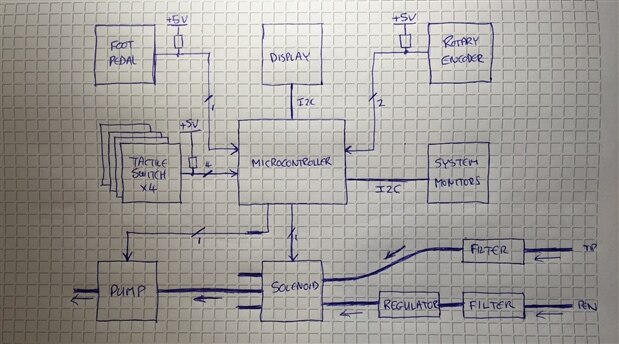 +5V
FOOT
PEDAL
DISPLAY
+5V
ROTARY
ENCODER
1
I2C
2
TACTILE
SWITCH
X4
+5V
4
MICROCONTROLLER
I2C
SYSTEM
MONITORS
1
1
PUMP
SOLENOID
FILTER
TIP
REGULATOR
FILTER
PEN